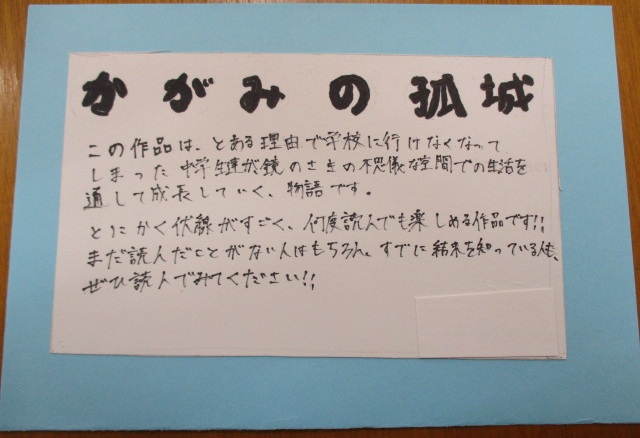 かがみの孤城
この作品は、とある理由で学校に行けなくなって
しまった中学生達が鏡のさきの不思儀な空間での生活を
通して成長していく、物語です。
とにかく伏線がすごく、何度読んでも楽しめる作品です!!
まだ読んだことがない人はもちろん。すでに結末を知っている人も、
ぜひ読んでみてください!!